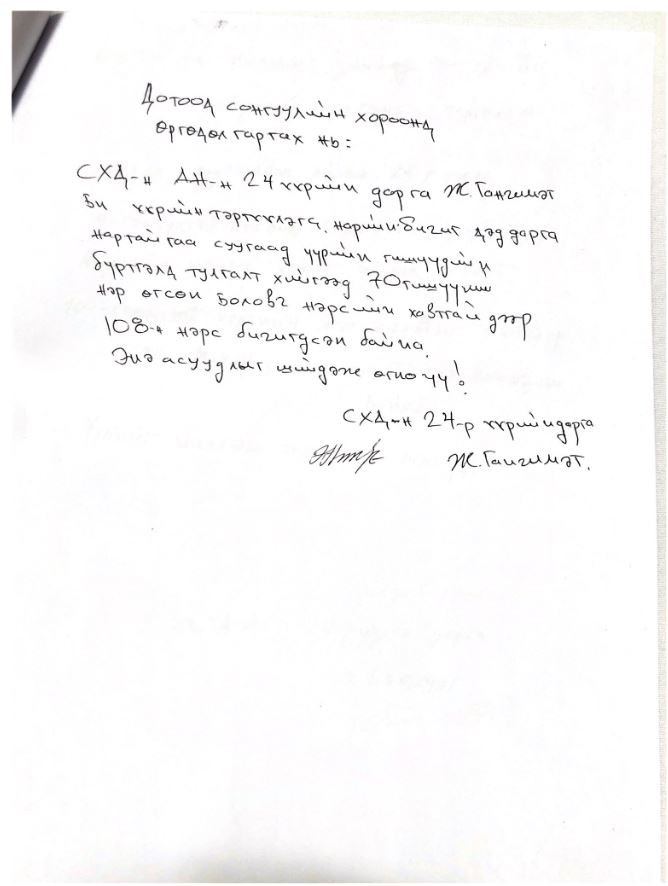 Дотоод сонгуулийн хороонд
өргөдөл гаргах нь:
СХД-н АН-н 24 үүрийн дарга Ж.Гангимэт
Би үүрийн тэргүүлэгч, нарийн бичиг дэд дарга
нартайгаа суугаад үүрийн гишүүдийн
бүртгэлд тулгалт хийгээд 70 гишүүний
нэр өгсөн боловч нэрсийн хавтгай дээр
108-н нэрс бичигдсэн байна.
Энэ асуудлыг шийдэж өгнө үү!
СХД-н 24-р үүрийн дарга
Ж.Гангимэт.